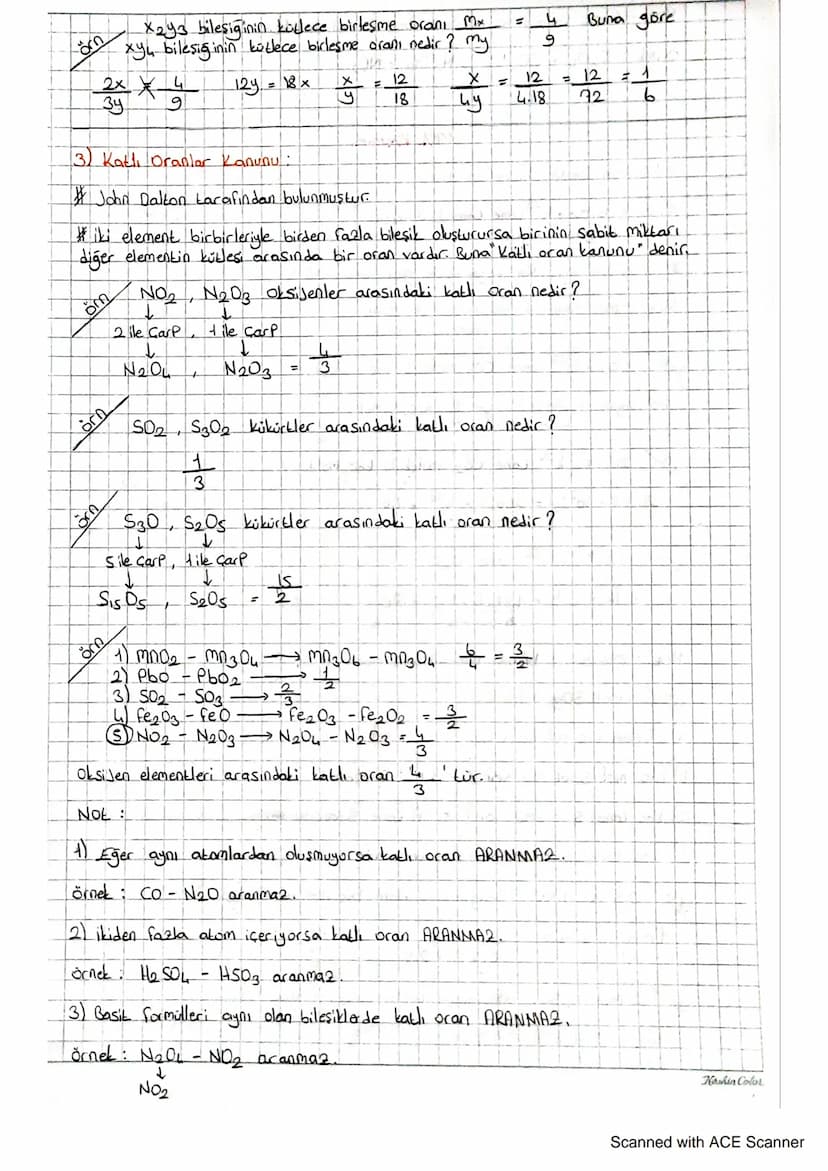 örn x2y3 bileşiğinin kütlece birleşme oranı mx/my = 4/9 Buna göre
xy4 bileşiğinin kütlece birleşme oranı nedir?
2x/3y = 4/9 12y = 18x x/y = 12/18 x/4y = 12/4.18 = 12/72 = 1/6
3) Katlı Oranlar Kanunu:
# John Dalton tarafından bulunmuştur.
# iki element birbirleriyle birden fazla bileşik oluşturursa birinin sabit miktarı
diğer elementin kütlesi arasında bir oran vardır. Buna "Katlı oran kanunu" denir.
örn NO2, N2O3 oksijenler arasındaki katlı oran nedir?
↓ ↓
2 ile Çarp, 1 ile Çarp
↓ ↓
N2O4, N2O3 = 4/3
örn SO2, S3O2 kükürtler arasındaki katlı oran nedir?
1/3
örn S3O, S2O5 kükürtler arasındaki katlı oran nedir?
↓ ↓
5 ile Çarp, 1 ile Çarp
↓ ↓
S15O5, S2O5 = 15/2
örn 1) mnO2 - mn3O4 → mn3O6 - mn3O4 6/4 = 3/2
2) PbO - PbO2 → 1/2
3) SO2 - SO3 → 2/3
4) Fe2O3 - FeO → Fe2O3 - Fe2O2 = 3/2
5) NO2 - N2O3 → N2O4 - N2O3 = 4/3
Oksijen elementleri arasındaki katlı oran 4/3 'tür.
NOt :
1) Eğer aynı atomlardan oluşmuyorsa katlı oran ARANMAZ.
örnek : CO - N2O aranmaz.
2) ikiden fazla atom içeriyorsa katlı oran ARANMAZ.
örnek : H2SO4 - HSO3 aranmaz.
3) Basit formülleri aynı olan bileşiklerde katlı oran ARANMAZ.
örnek : N2O4 - NO2 aranmaz.
↓
NO2
Keskin Color
Scanned with ACE Scanner